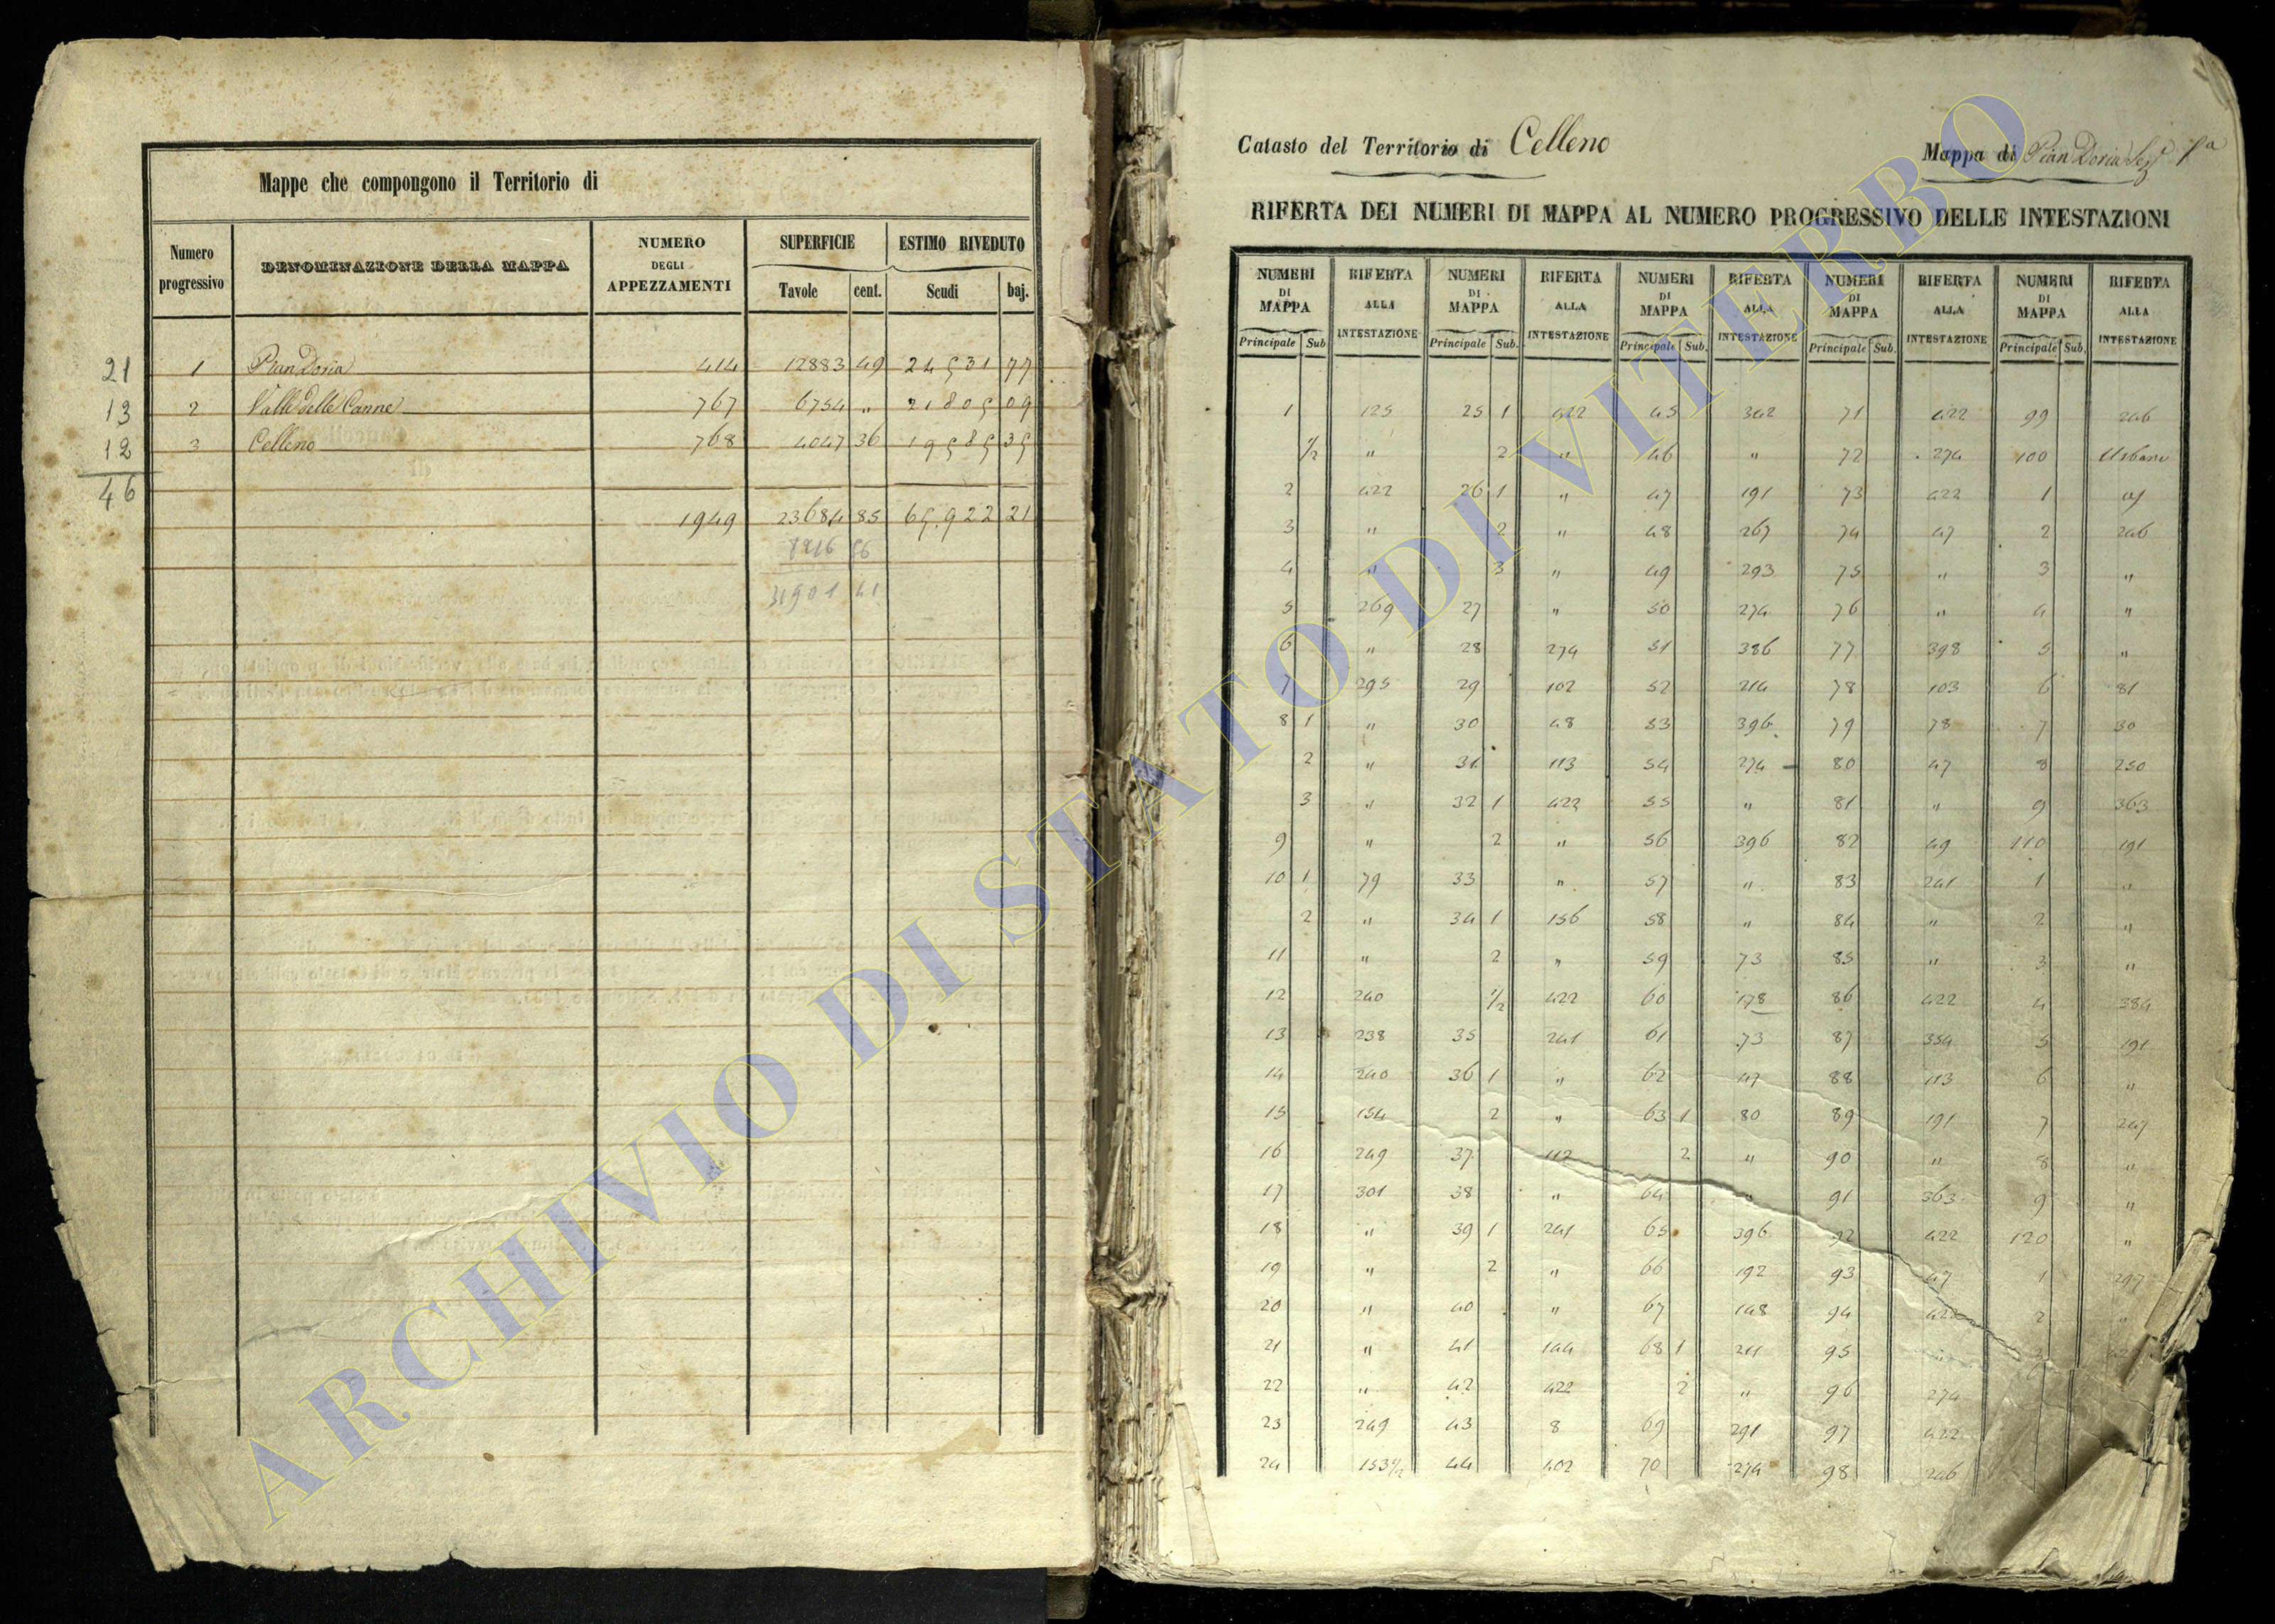 Mappe che compongono il Territorio di
Numero progressivo DENOMINAZIONE DELLA MAPPA NUMERO DEGLI APPEZZAMENTI SUPERFICIE ESTIMO RIVEDUTO
Tavole cent. Scudi baj.
21 1 Pian Doria 414 12883 49 24531 77
13 2 Valle delle Canne 767 6754 „ 21805 09
12 3 Celleno 768 4047 36 19585 35
46
1949 23684 85 65.922 21
8216 56
31901 41
Catasto del Territorio di Celleno Mappa di Pian Doria Sez. 1a
RIFERTA DEI NUMERI DI MAPPA AL NUMERO PROGRESSIVO DELLE INTESTAZIONI
NUMERI DI MAPPA RIFERTA ALLA INTESTAZIONE NUMERI DI MAPPA RIFERTA ALLA INTESTAZIONE NUMERI DI MAPPA RIFERTA ALLA INTESTAZIONE NUMERI DI MAPPA RIFERTA ALLA INTESTAZIONE NUMERI DI MAPPA RIFERTA ALLA INTESTAZIONE
Principale Sub Principale Sub. Principale Sub. Principale Sub. Principale Sub.
1 125 25 1 422 45 342 71 422 99 246
1/2 " 2 " 46 " 72 274 100 Urbano
2 422 26 1 " 47 191 73 422 1
3 " 2 " 48 267 74 47 2 246
4 " 3 " 49 293 75 " 3 "
5 269 27 " 50 274 76 " 4 "
6 " 28 274 51 386 77 398 5 "
7 295 29 102 52 214 78 103 6 81
8 1 " 30 48 53 396 79 78 7 30
2 " 31 113 54 274 80 47 8 250
3 " 32 1 422 55 " 81 " 9 363
9 " 2 " 56 396 82 49 110 191
10 1 79 33 " 57 " 83 241 1 "
2 " 34 1 156 58 " 84 " 2 "
11 " 2 " 59 73 85 " 3 "
12 240 1/2 422 60 178 86 422 4 384
13 238 35 241 61 73 87 354 5 191
14 240 36 1 " 62 47 88 113 6 "
15 154 2 " 63 1 80 89 191 7 247
16 249 37 112 2 " 90 " 8 "
17 301 38 " 64 " 91 363 9 "
18 " 39 1 241 65 396 92 422 120 "
19 " 2 " 66 192 93 47 1 297
20 " 40 " 67 148 94 422 2 "
21 " 41 144 68 1 211 95
22 " 42 422 2 " 96 274
23 249 43 8 69 291 97 422
24 153 1/2 44 402 70 274 98 246
ARCHIVIO DI STATO DI VITERBO